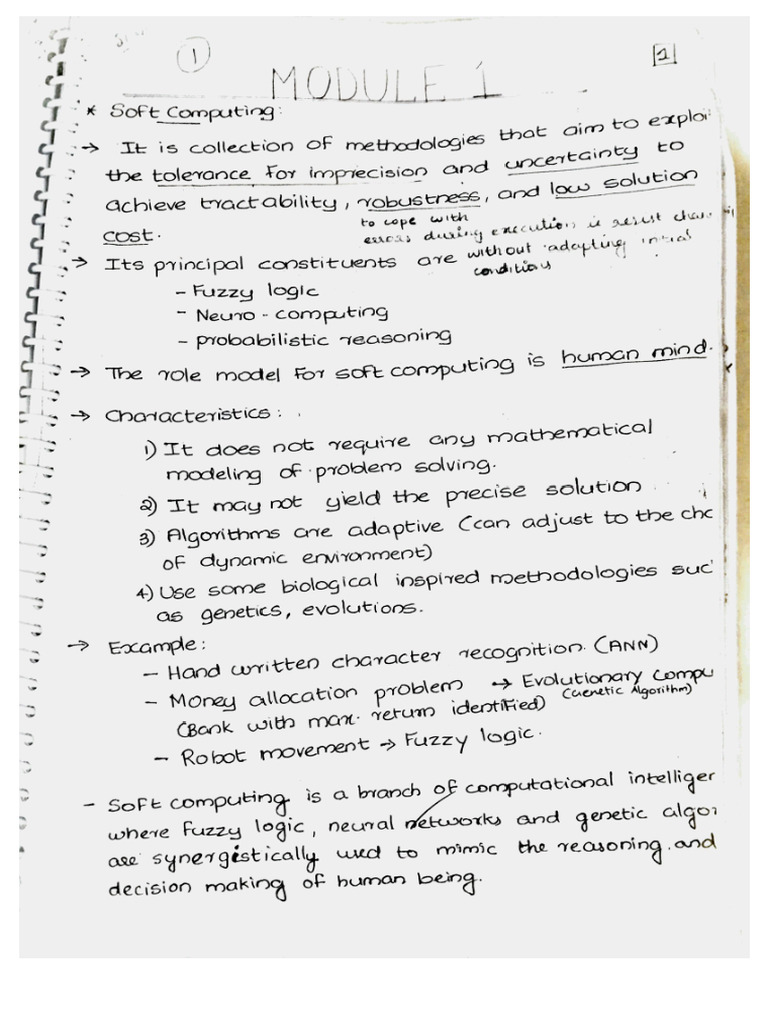 1
1
MODULE 1
* Soft Computing:
→ It is collection of methodologies that aim to exploi
the tolerance for imprecision and uncertainty to
achieve tractability, robustness, and low solution
cost.
to cope with
errors during execution is resist
without adapting initial
conditions
→ Its principal constituents are
- Fuzzy logic
- Neuro-computing
- probabilistic reasoning
→ The role model for soft computing is human mind.
→ Characteristics:
1) It does not require any mathematical
modeling of problem solving.
2) It may not yield the precise solution
3) Algorithms are adaptive (can adjust to the cha
of dynamic environment)
4) Use some biological inspired methodologies suc
as genetics, evolutions.
→ Example:
- Hand written character recognition. (ANN)
- Money allocation problem → Evolutionary Compu
(Bank with max. return identified) (Genetic Algorithm)
- Robot movement → Fuzzy logic.
- Soft computing is a branch of computational intelligen
where fuzzy logic, neural networks and genetic algor
are synergistically used to mimic the reasoning and
decision making of human being.